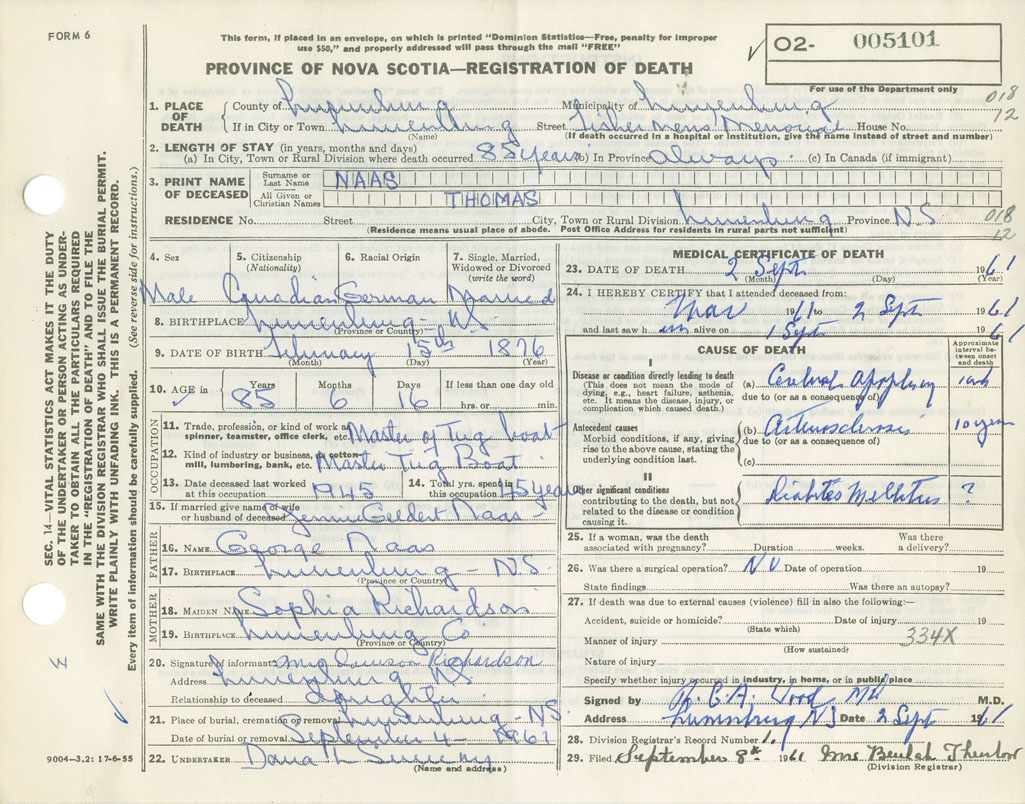 FORM 6
This form, if placed in an envelope, on which is printed "Dominion Statistics—Free, penalty for improper
use $50," and properly addressed will pass through the mail "FREE"
PROVINCE OF NOVA SCOTIA—REGISTRATION OF DEATH
✓ 02- 005101
For use of the Department only
018
12
1. PLACE OF DEATH { County of Lunenburg Municipality of Lunenburg
If in City or Town Lunenburg Street Fishermens Memorial House No.
(Name) (If death occurred in a hospital or institution, give the name instead of street and number)
2. LENGTH OF STAY (in years, months and days)
(a) In City, Town or Rural Division where death occurred 85 years (b) In Province always (c) In Canada (if immigrant)
3. PRINT NAME OF DECEASED { Surname or Last Name NAAS
All Given or Christian Names THOMAS
RESIDENCE No. Street City, Town or Rural Division Lunenburg Province N.S
(Residence means usual place of abode. Post Office Address for residents in rural parts not sufficient)
018
12
4. Sex Male
5. Citizenship (Nationality) Canadian
6. Racial Origin German
7. Single, Married, Widowed or Divorced (write the word) Married
8. BIRTHPLACE Lunenburg - N.S.
(Province or Country)
9. DATE OF BIRTH February 15th 1876
(Month) (Day) (Year)
10. AGE in Years 85 Months 6 Days 16 If less than one day old hrs. or min.
✓
OCCUPATION
11. Trade, profession, or kind of work as spinner, teamster, office clerk, etc. Master of Tug boat
12. Kind of industry or business, as cotton-mill, lumbering, bank, etc. Master Tug Boat
13. Date deceased last worked at this occupation 1945
14. Total yrs. spent in this occupation 45 years
15. If married give name of wife or husband of deceased Jennie Geldert Naas
FATHER
16. NAME George Naas
17. BIRTHPLACE Lunenburg - N.S.
(Province or Country)
MOTHER
18. MAIDEN NAME Sophia Richardson
19. BIRTHPLACE Lunenburg Co
(Province or Country)
20. Signature of informant Mrs Richardson
Address Lunenburg N.S.
Relationship to deceased Daughter
21. Place of burial, cremation or removal Lunenburg - N.S.
Date of burial or removal September 4 - 1961
22. UNDERTAKER Dana L Sweeny
(Name and address)
MEDICAL CERTIFICATE OF DEATH
23. DATE OF DEATH 2 Sept 1961
(Month) (Day) (Year)
24. I HEREBY CERTIFY that I attended deceased from:
Mar 1961 to 2 Sept 1961
and last saw him alive on 1 Sept 1961
CAUSE OF DEATH
Approximate interval between onset and death
I
Disease or condition directly leading to death (a) Cerebral Apoplexy
(This does not mean the mode of dying, e.g., heart failure, asthenia, etc. It means the disease, injury, or complication which caused death.)
due to (or as a consequence of)
Antecedent causes (b) Arteriosclerosis 10 years
Morbid conditions, if any, giving rise to the above cause, stating the underlying condition last.
due to (or as a consequence of)
(c)
II
Other significant conditions Diabetes Mellitus ?
contributing to the death, but not related to the disease or condition causing it.
25. If a woman, was the death associated with pregnancy? Duration weeks. Was there a delivery?
26. Was there a surgical operation? NO Date of operation 19
State findings Was there an autopsy?
27. If death was due to external causes (violence) fill in also the following:—
Accident, suicide or homicide? Date of injury 19
(State which)
Manner of injury 334X
(How sustained)
Nature of injury
Specify whether injury occurred in industry, in home, or in public place
Signed by R. C. A. Wood MD M.D.
Address Lunenburg N S Date 2 Sept 1961
28. Division Registrar's Record Number
29. Filed September 8th 1961 Mrs Beulah
(Division Registrar)
SEC. 14—VITAL STATISTICS ACT MAKES IT THE DUTY
OF THE UNDERTAKER OR PERSON ACTING AS UNDER-
TAKER TO OBTAIN ALL THE PARTICULARS REQUIRED
IN THE "REGISTRATION OF DEATH" AND TO FILE THE
SAME WITH THE DIVISION REGISTRAR WHO SHALL ISSUE THE BURIAL PERMIT.
WRITE PLAINLY WITH UNFADING INK. THIS IS A PERMANENT RECORD.
Every item of information should be carefully supplied. (See reverse side for instructions.)
W
✓
9004—3.2: 17-6-55